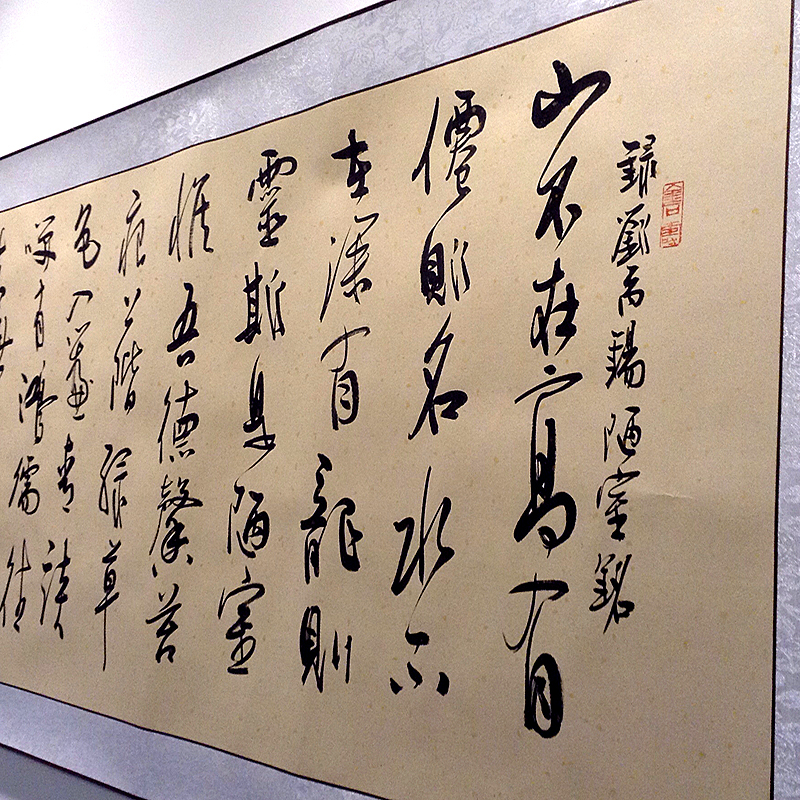 錄劉禹錫陋室銘
山不在高有
僊則名水不
在深有龍則
靈斯是陋室
惟吾德馨苔
痕上階綠草
色入簾青談
笑有鴻儒往